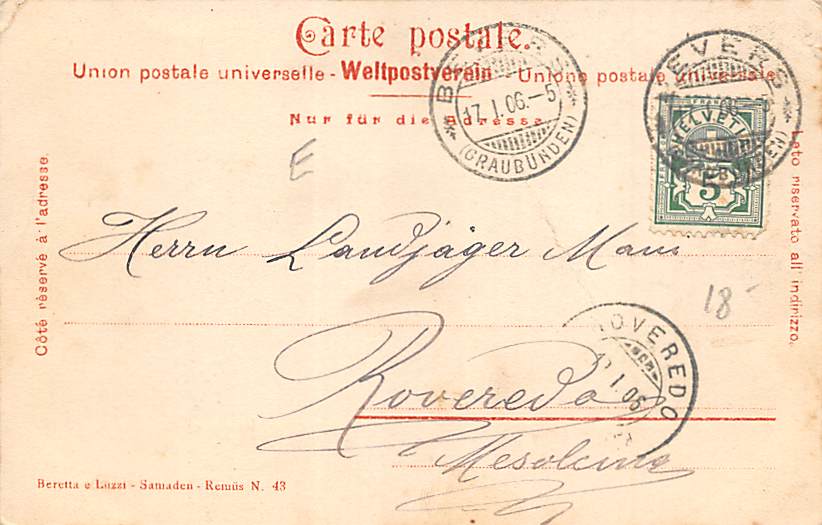 Carte postale.
Union postale universelle - Weltpostverein - Unione postale universale
Nur für die Adresse
BEVERS
17.I.06.-5
(GRAUBÜNDEN)
BEVERS
HELVETIA
5
E
Côté réservé à l'adresse.
Lato riservato all' indirizzo.
Herrn Landjäger
18-
ROVEREDO
I.06
Roveredo
Mesolcina
Beretta e Luzzi - Samaden - Remüs N. 43